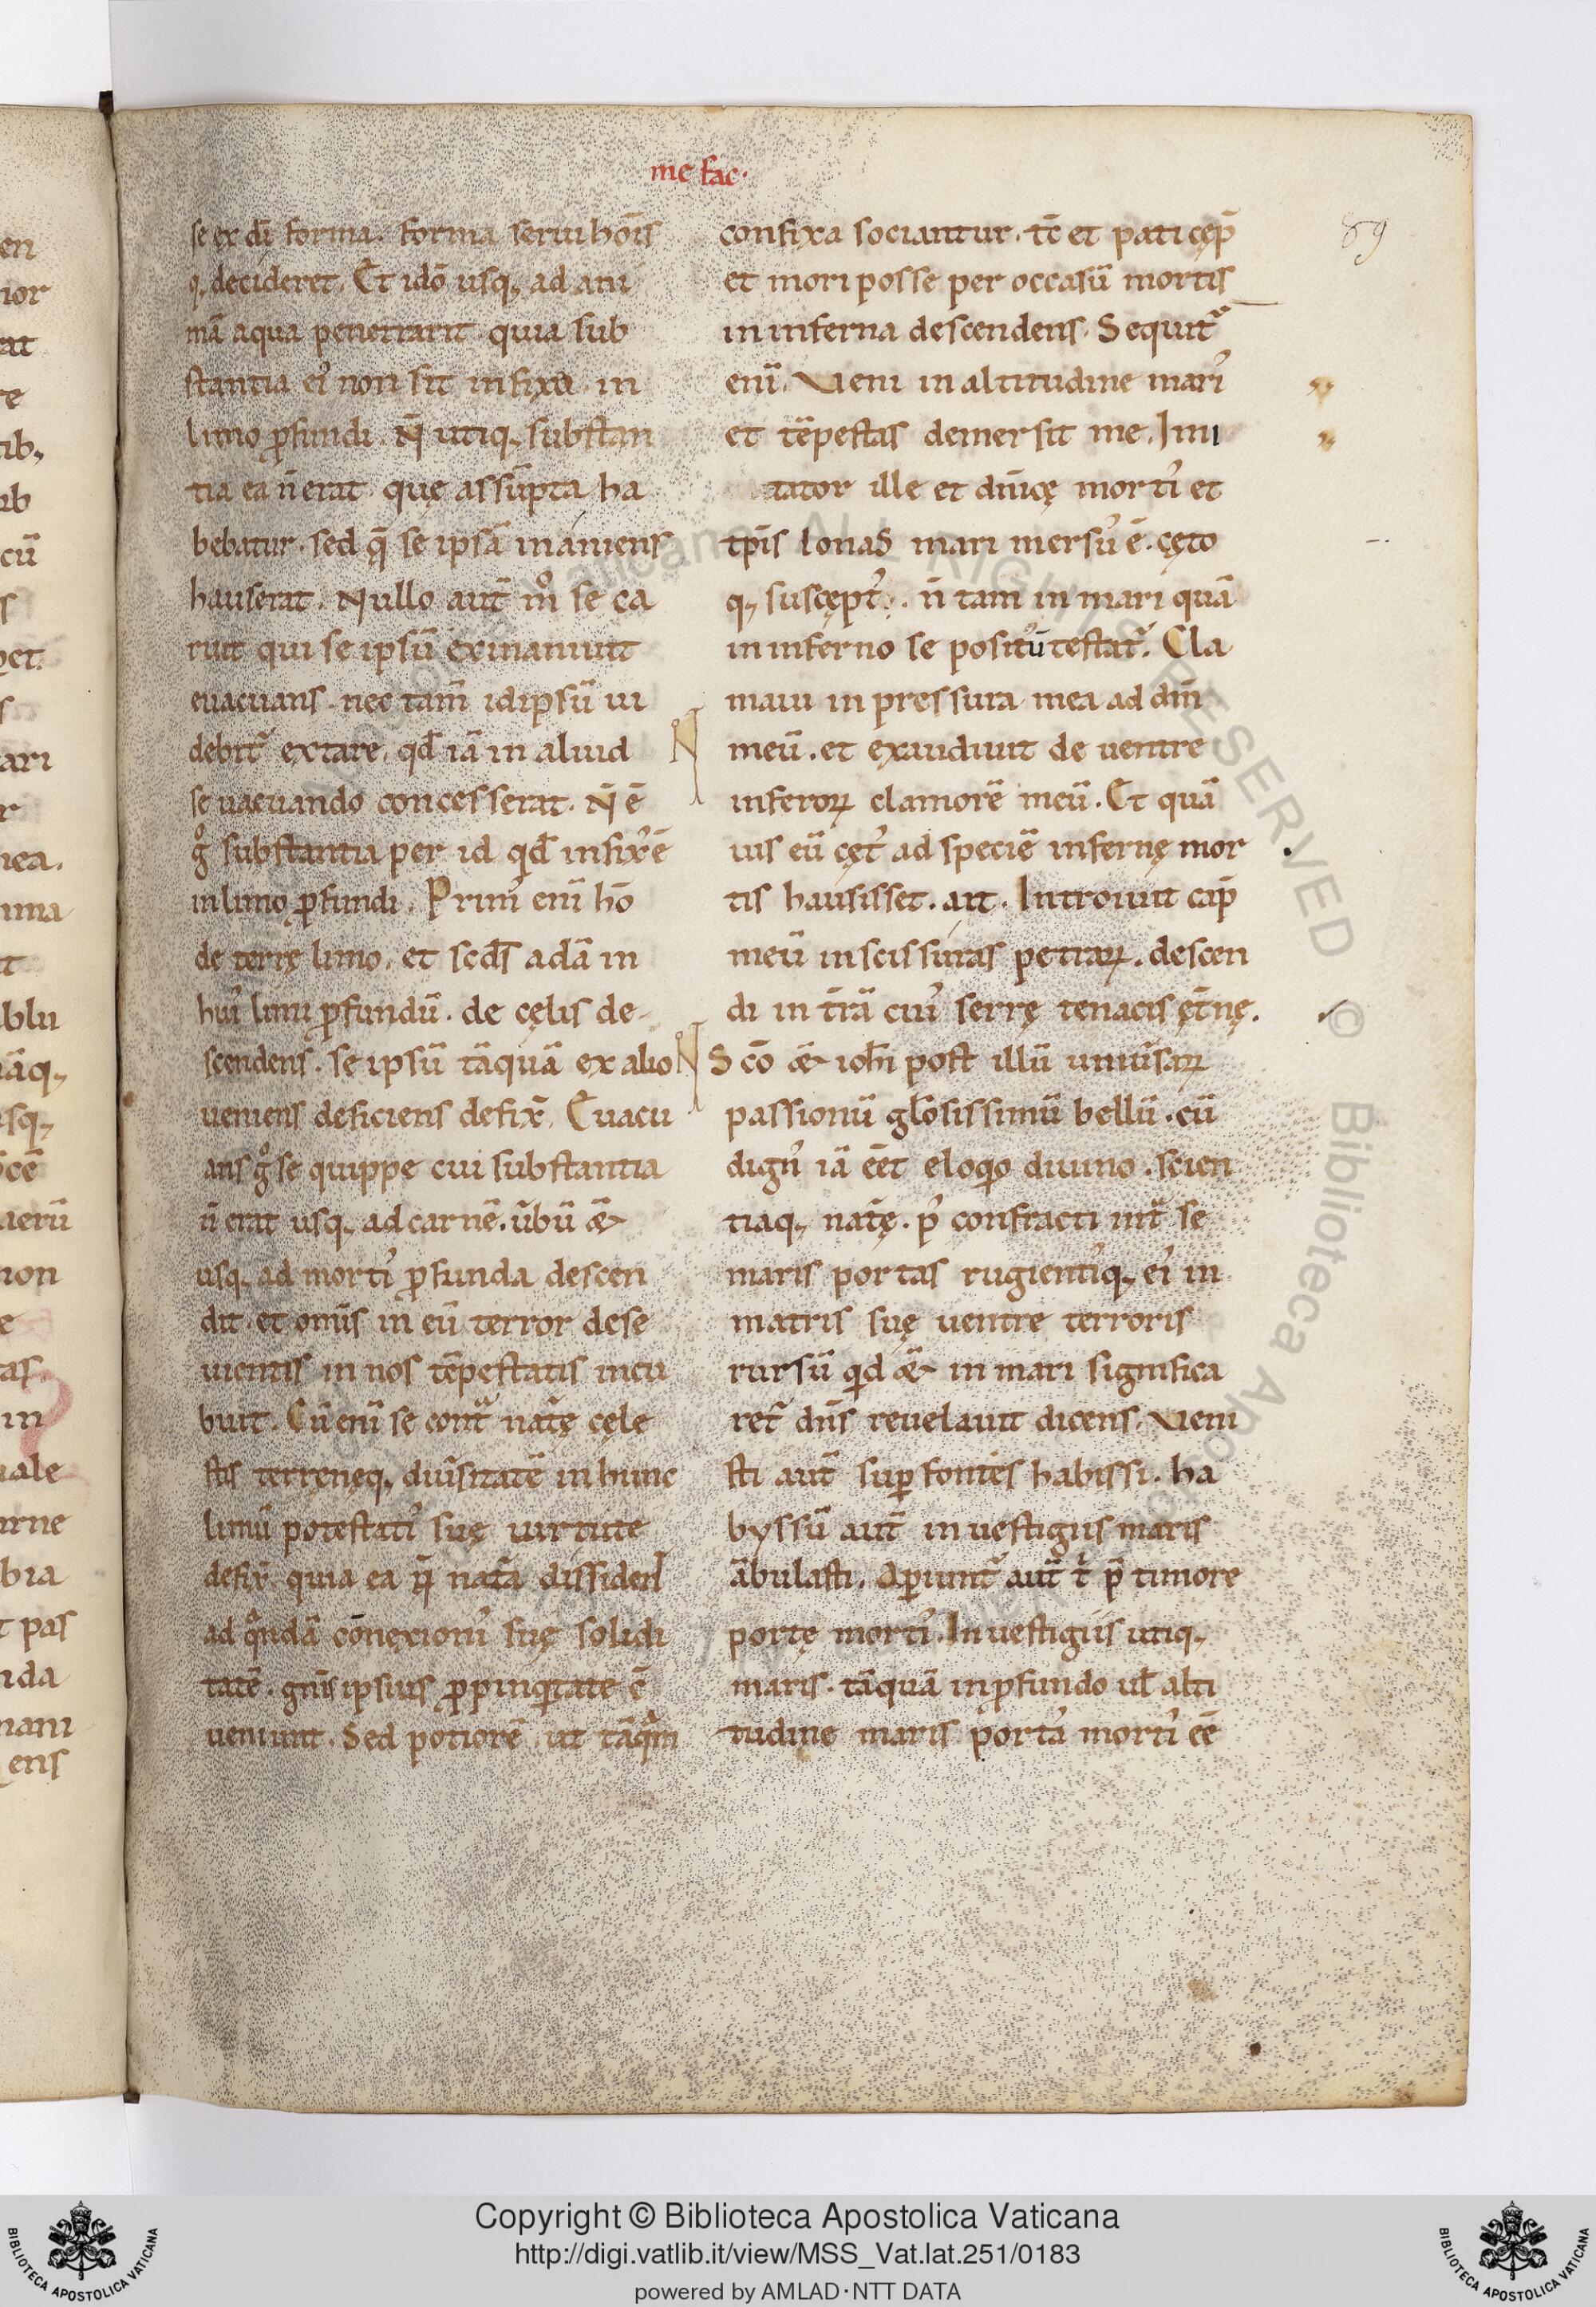 me fac·
89
se ex dī forma. forma serui hoīs
q; decideret. Et idō usq; ad ani
mā aqua penetrarit quia sub
stantia ei' non sit infixa in
limo ꝓfundi. N̄ utiq; substan
tia ea n̄ erat quę assūpta ha
bebatur. sed q̄ se ipsā inaniens
hauserat. Nullo aut̄ m̊ se ca
ruit qui se ipsū exinaniuit
euacuans. nec tam̄ idipsū ui
debit᷑ extare. qd̄ iā in aliud
se uacuando concesserat. N̄ ē
g̊ substantia per id qd̄ infix' ē
in limo ꝓfundi. Prim' eni hō
de terrę limo. et scd̄s adā in
hui' limi ꝓfundū. de cęlis de-
scendens. se ipsū tāquā ex alio
ueniens deficiens defix̄. Euacu
ans g̊ se quippe cui substantia
n̄ erat usq; ad carnē. ūbū &
usq; ad morti' ꝓfunda descen
dit. et omīs in eū terror dese
uientis in nos tēpestatis incu
buit. Cū enī se cont᷑ nat̄ę cęle
stis terrenęq; diūsitatē in hunc
limū potestati' suę uirtute
defix̄. quia ea q̄ nat̄a dissiden̄
ad q᷑ndā cōnexioni' suę solidi
tatē. gn̄is ipsius ꝓpinqtate ē
ueniunt. Sed potiorē ut tāq᷑m
confixa sociantur. tc̄ et pati cęp̄
et mori posse per occasū mortis
in inferna descendens. Sequit᷑
enī. Veni in altitudine mari'
et tēpestas demersit me. Imi
tator ille et dn̄icę morti' et
tp̄is Ionas mari mersu' ē. cęto
q; suscępt'. n̄ tam in mari quā
in inferno se positū testat᷑. Cla
maui in pressura mea ad dn̄m
meū. et exaudiuit de uentre
inferoꝝ clamorē meū. Et quā
uis eū cęt' ad speciē infernę mor
tis hausisset. ait. Introiuit cap̄
meū in scissuras petraꝝ. descen
di in t̄rā cui' serrę tenacis ęt̄nę.
Sc̄o & ioh̄i post illū uniūsaꝝ
passionū gl̄osissimū bellū. cū
dign' iā eēt eloqo diuino. scien
tiaq; nat̄ę. p' confracti int᷑ se
maris portas rugienti'q; ei' in
matris suę uentre terroris
rursū qid & in mari significa
ret᷑ dn̄s reuelauit dicens. Veni
sti aut̄ suꝑ fontes habissi. ha
byssū aut̄ in uestigiis maris
ābulasti. Aꝑiunt᷑ aut̄ t̄ p̄ timore
portę morti'. In uestigiis utiq;
maris. tāquā in ꝓfundo ul̄ alti
tudine maris porta' morti' eē
Copyright © Biblioteca Apostolica Vaticana
http://digi.vatlib.it/view/MSS_Vat.lat.251/0183
powered by AMLAD·NTT DATA